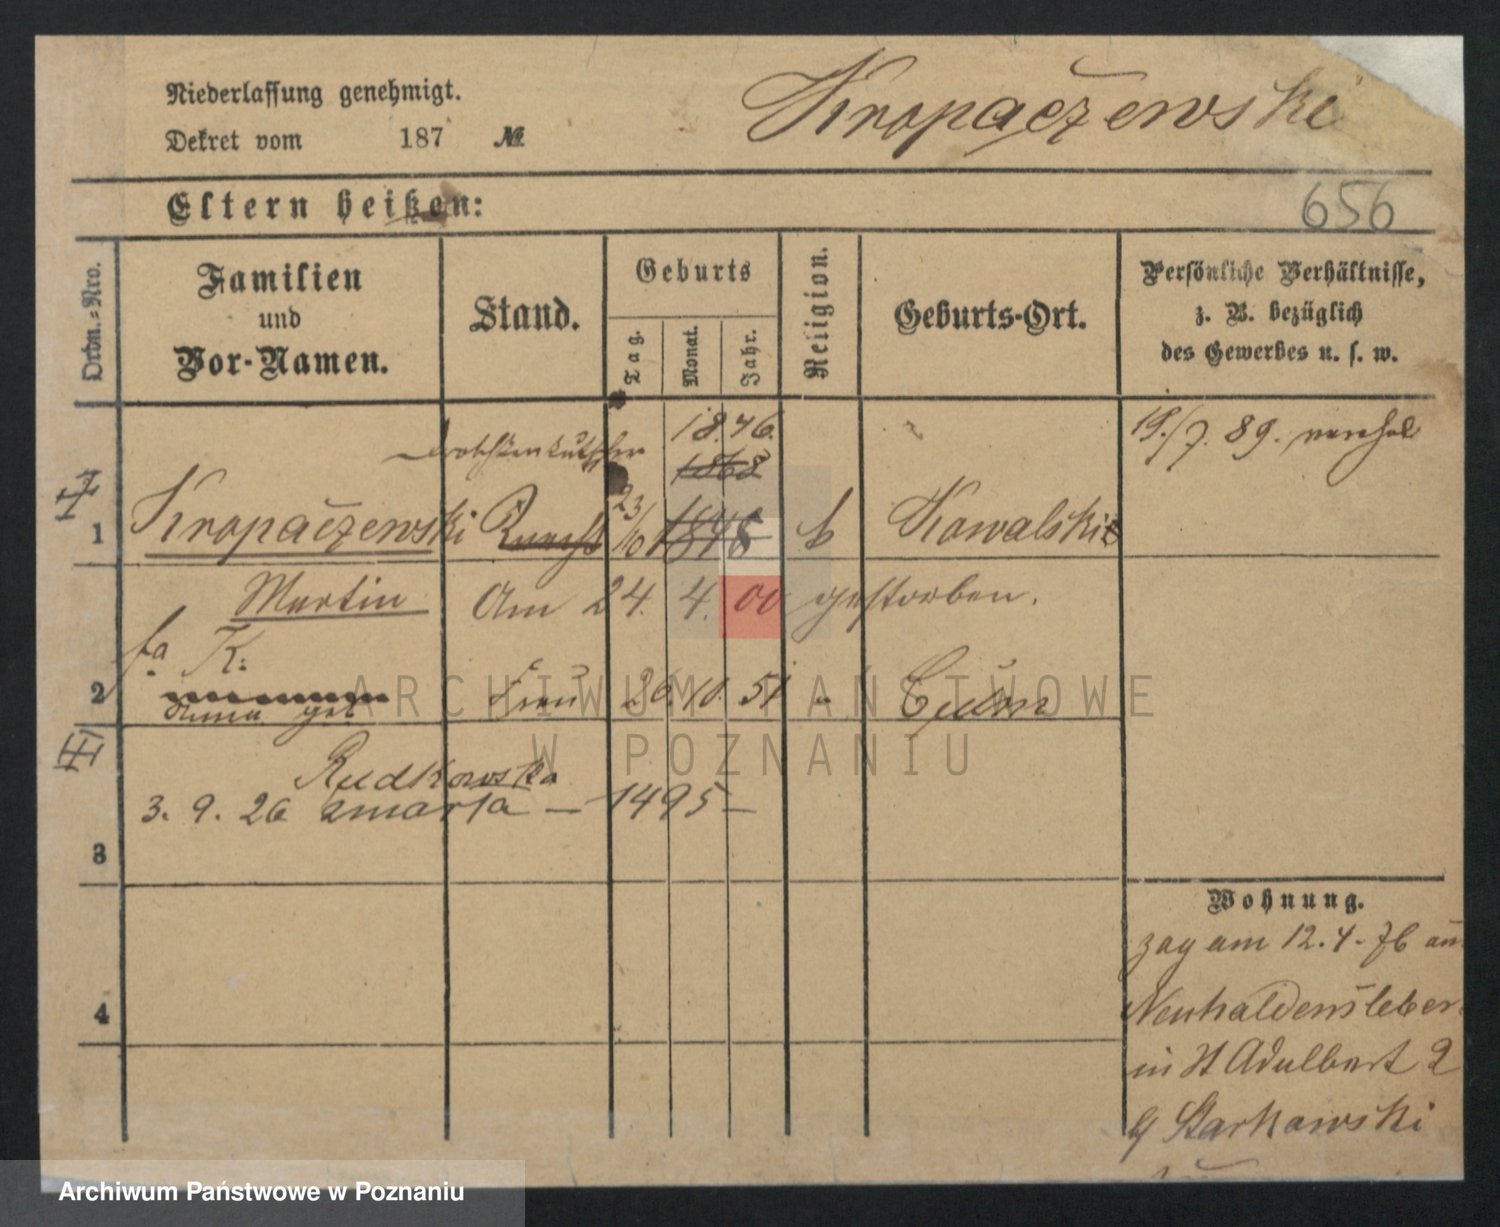 Niederlassung genehmigt.
Kropaczewski
Dekret vom 187 №
Eltern heißen:
656
Ordn.-Nro.
Familien
und
Vor-Namen.
Stand.
Geburts
Tag.
Monat.
Jahr.
Religion.
Geburts-Ort.
Persönliche Verhältnisse,
z. B. bezüglich
des Gewerbes u. s. w.
Droschkenkutscher
1846.
1868
19./7. 89.
1
Kropaczewski
Knecht
23/10
1848
k
Kowalskie
Martin
Am 24. 4. 00 gestorben.
K:
2
Anna geb
Frau
26. 10. 51
Culm
Rudkowska
3. 9. 26 zmarła — 1495 —
3
4
Wohnung.
zog am 12. 4. 76 aus
Neuhaldensleben
in St Adalbert 2
Starkowski
ARCHIWUM PAŃSTWOWE
W POZNANIU
Archiwum Państwowe w Poznaniu